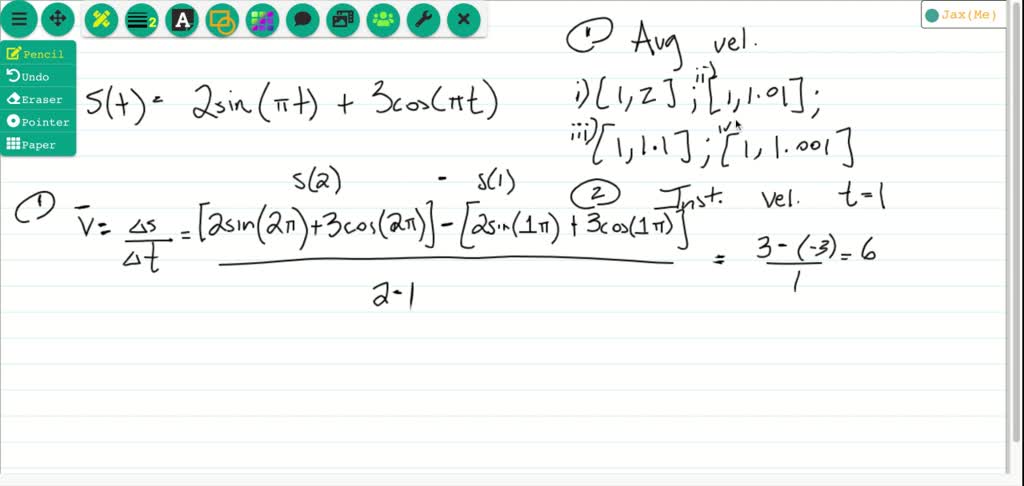 2 A Jax(Me)
Pencil
Undo
Eraser
Pointer
Paper
① Avg vel.
S(t) = 2sin(πt) + 3cos(πt)
i) [1, 2] ; ii) [1, 1.01] ;
iii) [1, 1.1] ; iv) [1, 1.001]
s(2) - s(1)
② Inst. vel. t=1
① V̅ = Δs/Δt = [2sin(2π)+3cos(2π)] - [2sin(1π) + 3cos(1π)] / 2-1 = 3-(-3)/1 = 6